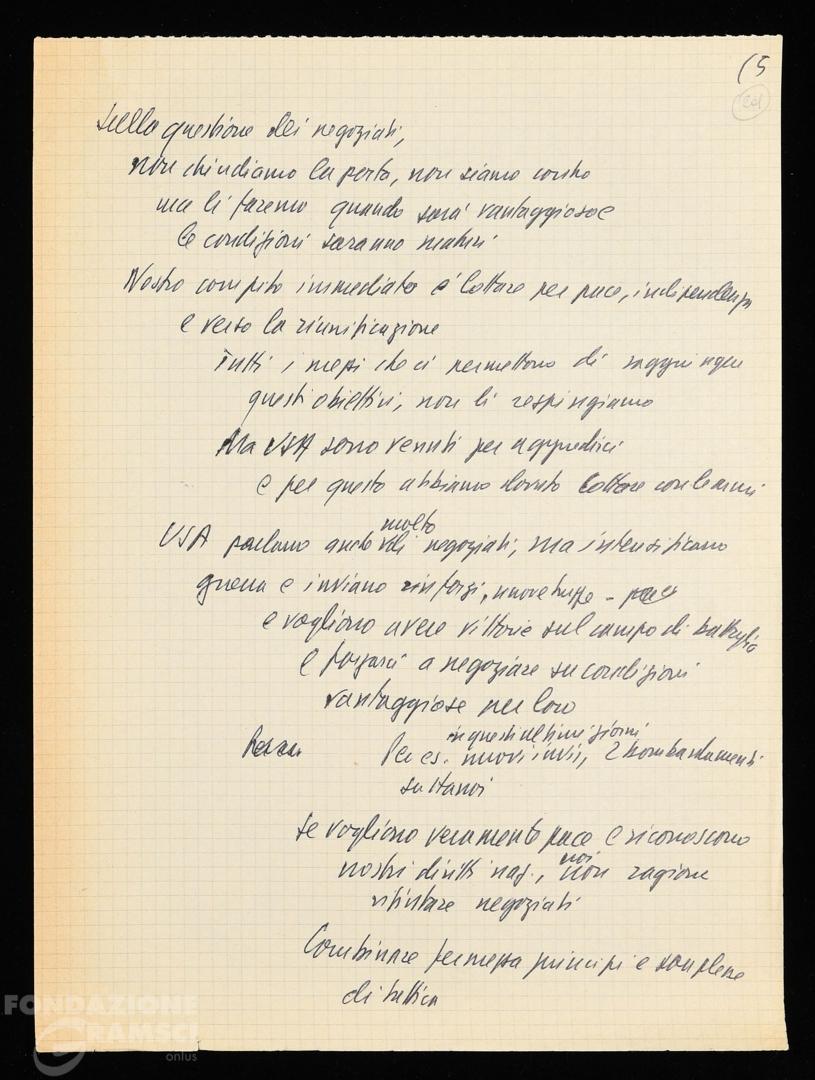 15
sulla questione dei negoziati,
non chiudiamo la porta, non siamo contro
ma li faremo quando sarà vantaggioso e
le condizioni saranno mature
Nostro compito immediato è lottare per pace, indipendenza
e verso la riunificazione
Tutti i mezzi che ci permettono di raggiungere
questi obiettivi, non li respingiamo
Ma USA sono venuti per aggredirci
e per questo abbiamo dovuto lottare con le armi
molto
USA parlano anche di negoziati, ma intensificano
guerra e inviano rinforzi, nuove truppe -
e vogliono avere vittorie sul campo di battaglia
e forzarci a negoziare su condizioni
vantaggiose per loro
in questi ultimi giorni
Per es. nuovi invii, 2 bombardamenti
su Hanoi
se vogliono veramente pace e riconoscono
noi
nostri diritti naz., non ragione
rifiutare negoziati
Combinare fermezza principi e souplesse
di tattica
FONDAZIONE
GRAMSCI
onlus